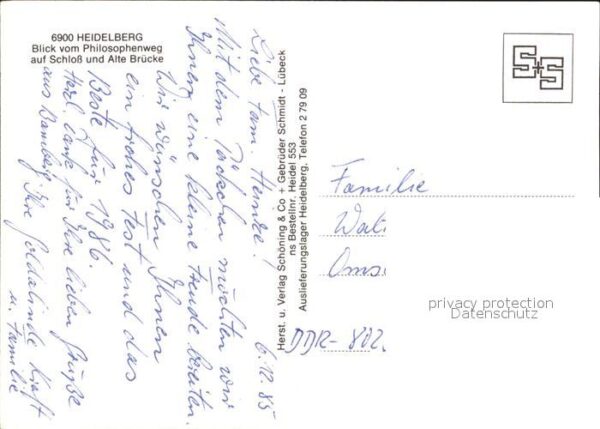 6900 HEIDELBERG
Blick vom Philosophenweg
auf Schloß und Alte Brücke
6.12.85
Liebe Fam. Heinze!
Mit dem Päckchen möchten wir
Ihnen eine kleine Freude bereiten.
Wir wünschen Ihnen
ein frohes Fest und das
Beste für 1986.
Herzl. Dank für Ihre lieben Grüße
aus Bamberg Ihre Goldalinde Kraft
u. Familie
Herst. u. Verlag Schöning & Co + Gebrüder Schmidt - Lübeck
ns Bestellnr. Heidel 553
Auslieferungslager Heidelberg, Telefon 2 79 09
S+S
Familie
Wat
Oms
DDR- 802
privacy protection
Datenschutz